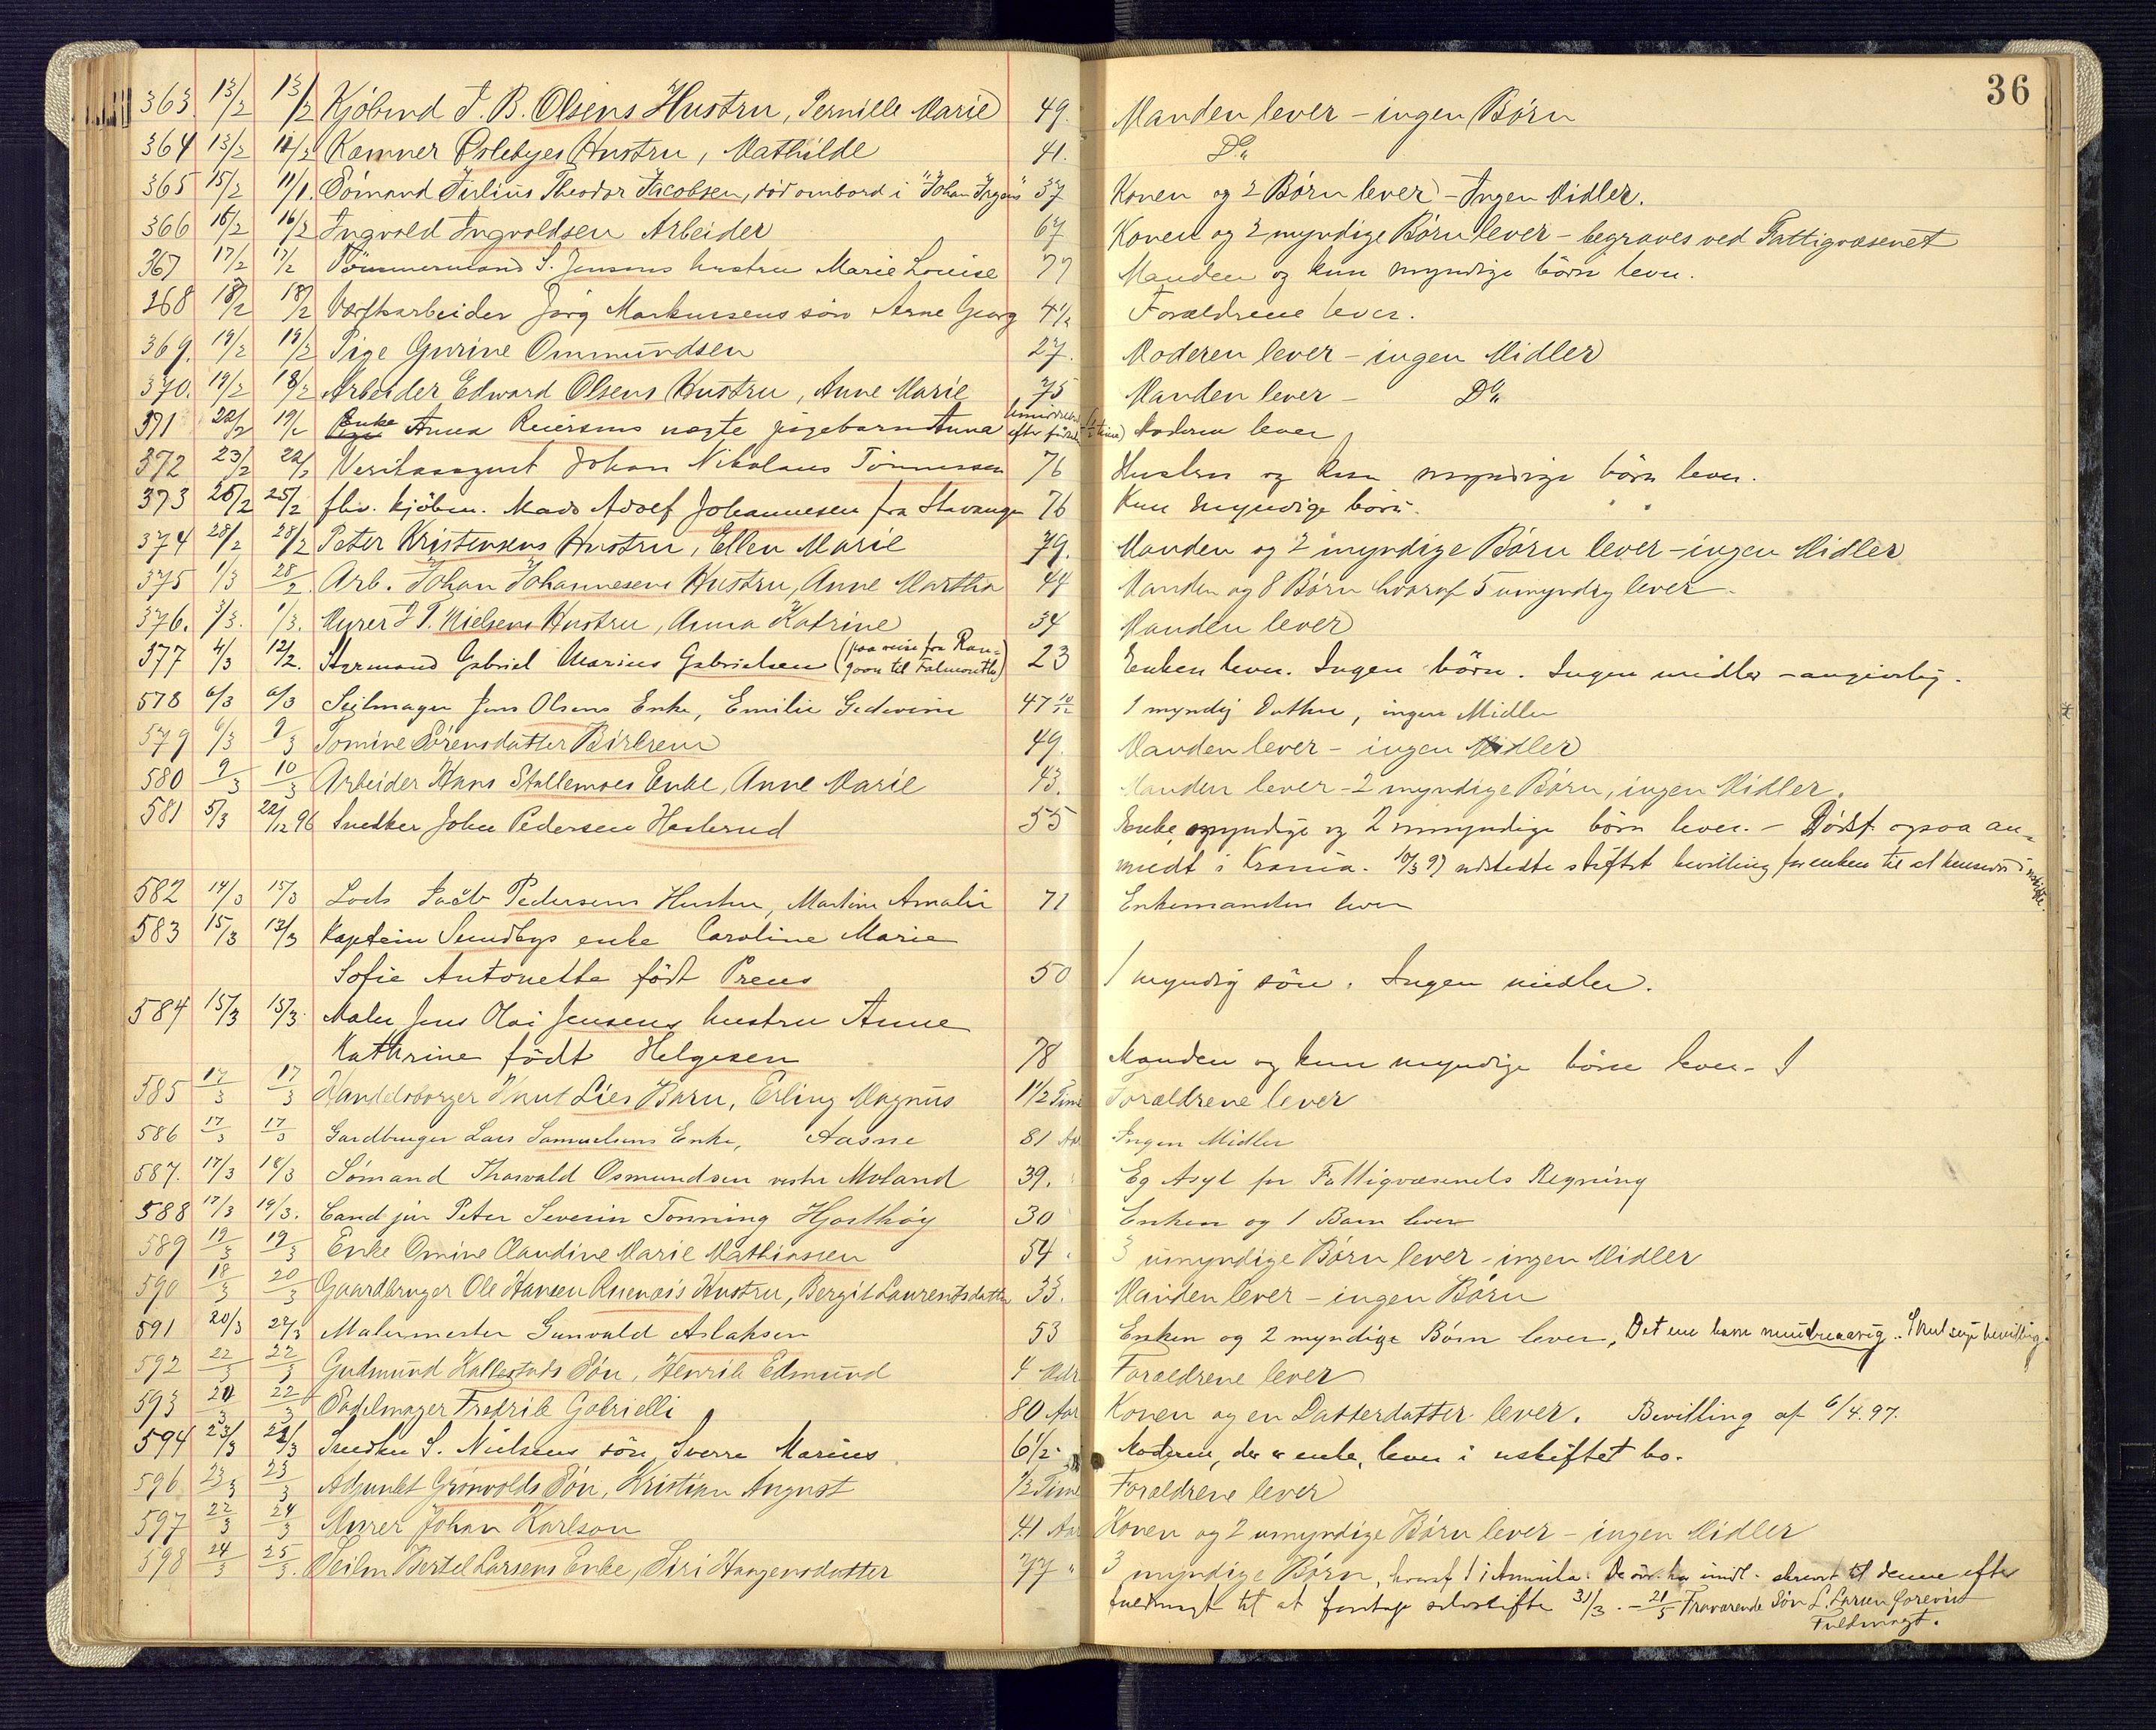 36
363. 13/2 13/2 Kjöbmd J. B. Olsens Hustru, Pernille Marie 49. Manden lever – ingen Börn
364 13/2 11/2 Kæmner Oslebyes Hustru, Mathilde 41. Do
365 15/2 11/1. Sömand Julius Theodor Jacobsen, död ombord i "Johan Irgens" 37 Konen og 2 Börn lever – Ingen Midler.
366 16/2 16/2 Ingvald Ingvaldsen Arbeider 67 Konen og 2 myndige Börn lever – begraves ved Fattigvæsenet
367 17/2 17/2 Tömmermand S. Jensens hustru Marie Louise 77 Manden og kun myndige börn lever.
368 18/2 18/2 Værftsarbeider Jörg Markussens sön Arne Georg 4 1/2 Forældrene lever.
369. 19/2 19/2 Pige Gurine Ommundsen 27. Moderen lever – ingen Midler
370. 19/2 18/2 Arbeider Edward Olsens Hustru, Anne Marie 75 Manden lever – Do
371 22/2 19/2 Enke Anna Reiersens uægte pigebarn Anna efter födselen Moderen lever
372 23/2 22/2 Veritasagent Johan Nikolaus Tönnessen 76 Hustru og kun myndige börn lever.
373 26/2 25/2 fhv. kjöbm. Mads Adolf Johannesen fra Stavanger 76 Kun myndige börn. " "
374 28/2 28/2 Peter Kristensens Hustru, Ellen Marie 79. Manden og 2 myndige Börn lever – ingen Midler
375 1/3 28/2 Arb. Johan Johannesens Hustru, Anne Martha 44 Manden og 8 Börn hvoraf 5 umyndig lever –
376. 3/3. 1/3. Murer J T. Nielsens Hustru, Anna Katrine 34 Manden lever
377 4/3 12/2. Styrmand Gabriel Marius Gabrielsen (paa reise fra Ran=goon til Falmouth) 23 Enken lever. Ingen börn. Ingen midler – angivelig.
578 6/3 6/3 Seilmager Jens Olsens Enke, Emilie Gedevine 47 10/12 1 myndig Datter, ingen Midler
579 6/3 9/3 Tomine Sörensdatter Birkrem 49. Manden lever – ingen Midler
580 9/3 10/3 Arbeider Hans Stallemoes Enke, Anne Marie 43. Manden lever – 2 myndige Börn, ingen Midler.
581 5/3 22/12 96 Snedker John Pedersen Hasterud 55 Enke, myndige og 2 umyndige börn lever. – Dödsf. ogsaa an=
meldt i Krania. 10/3 97 udstedte stiftet bevilling for enken til at hensidde i uskifte.
582 14/3 15/3 Lods Jacob Pedersens Hustru, Martine Amalie 71 Enkemanden lever
583 15/3 13/3 Kaptein Sundbys enke Caroline Marie
Sofie Antonette födt Preus 50 1 myndig sön. Ingen midler.
584 15/3 15/3. Maler Jens Olai Jensens hustru Anne
Kathrine födt Helgesen 78 Manden og kun myndige börn lever.
585 17/3 17/3 Handelsborger Knut Lies Barn, Erling Magnus 1 1/2 Time Forældrene lever
586 17/3 17/3 Gardbruger Lars Samuelsens Enke, Aasne 81 Aar Ingen Midler
587. 17/3 18/3 Sömand Thorvald Osmundsen vestre Moland 39. Eg Asyl for Fattigvæsenets Regning
588 17/3 19/3. Cand jur Peter Severin Tonning Hjorthöy 30 Enken og 1 Barn lever
589 19/3 19/3 Enke Omine Claudine Marie Mathiassen 54. 3 umyndige Börn lever – ingen Midler
590 18/3 20/3 Gaardbruger Ole Hansen Ruenæs's Hustru, Bergit Laurentsdatter 33. Manden lever – ingen Börn
591 20/3 22/3 Malermester Gunvald Aslaksen 53 Enken og 2 myndige Börn lever, Det ene barn mindreaarig. Skal söge bevilling.
592 22/3 22/3 Gudmund Kallestads Sön, Henrik Edmund 4 Mdr Forældrene lever
593 20/3 22/3 Sadelmager Fredrik Gabrielli 80 Aar Konen og en Datterdatter lever. Bevilling af 6/4. 97.
594 23/3 22/3 Snedker S. Nielsens sön Sverre Marius 6 1/2 Moderen, der er enke, lever i uskiftet bo.
596 23/3 23/3 Adjunkt Grönvolds Sön, Kristian August 1/2 Time Forældrene lever
597 22/3 24/3 Murer Johan Karlson 41 Aar Konen og 2 umyndige Börn lever – ingen Midler
598 24/3 25/3. Seilm Bertel Larsens Enke, Siri Haagensdatter 77 " 3 myndige Börn, hvoraf 1 i Amerika. De övr. har skrevet til denne efter
fuldmagt til at foretage selvskifte 31/3. – 21/5 Fraværende Sön L. Larsen forevist
Fuldmagt.